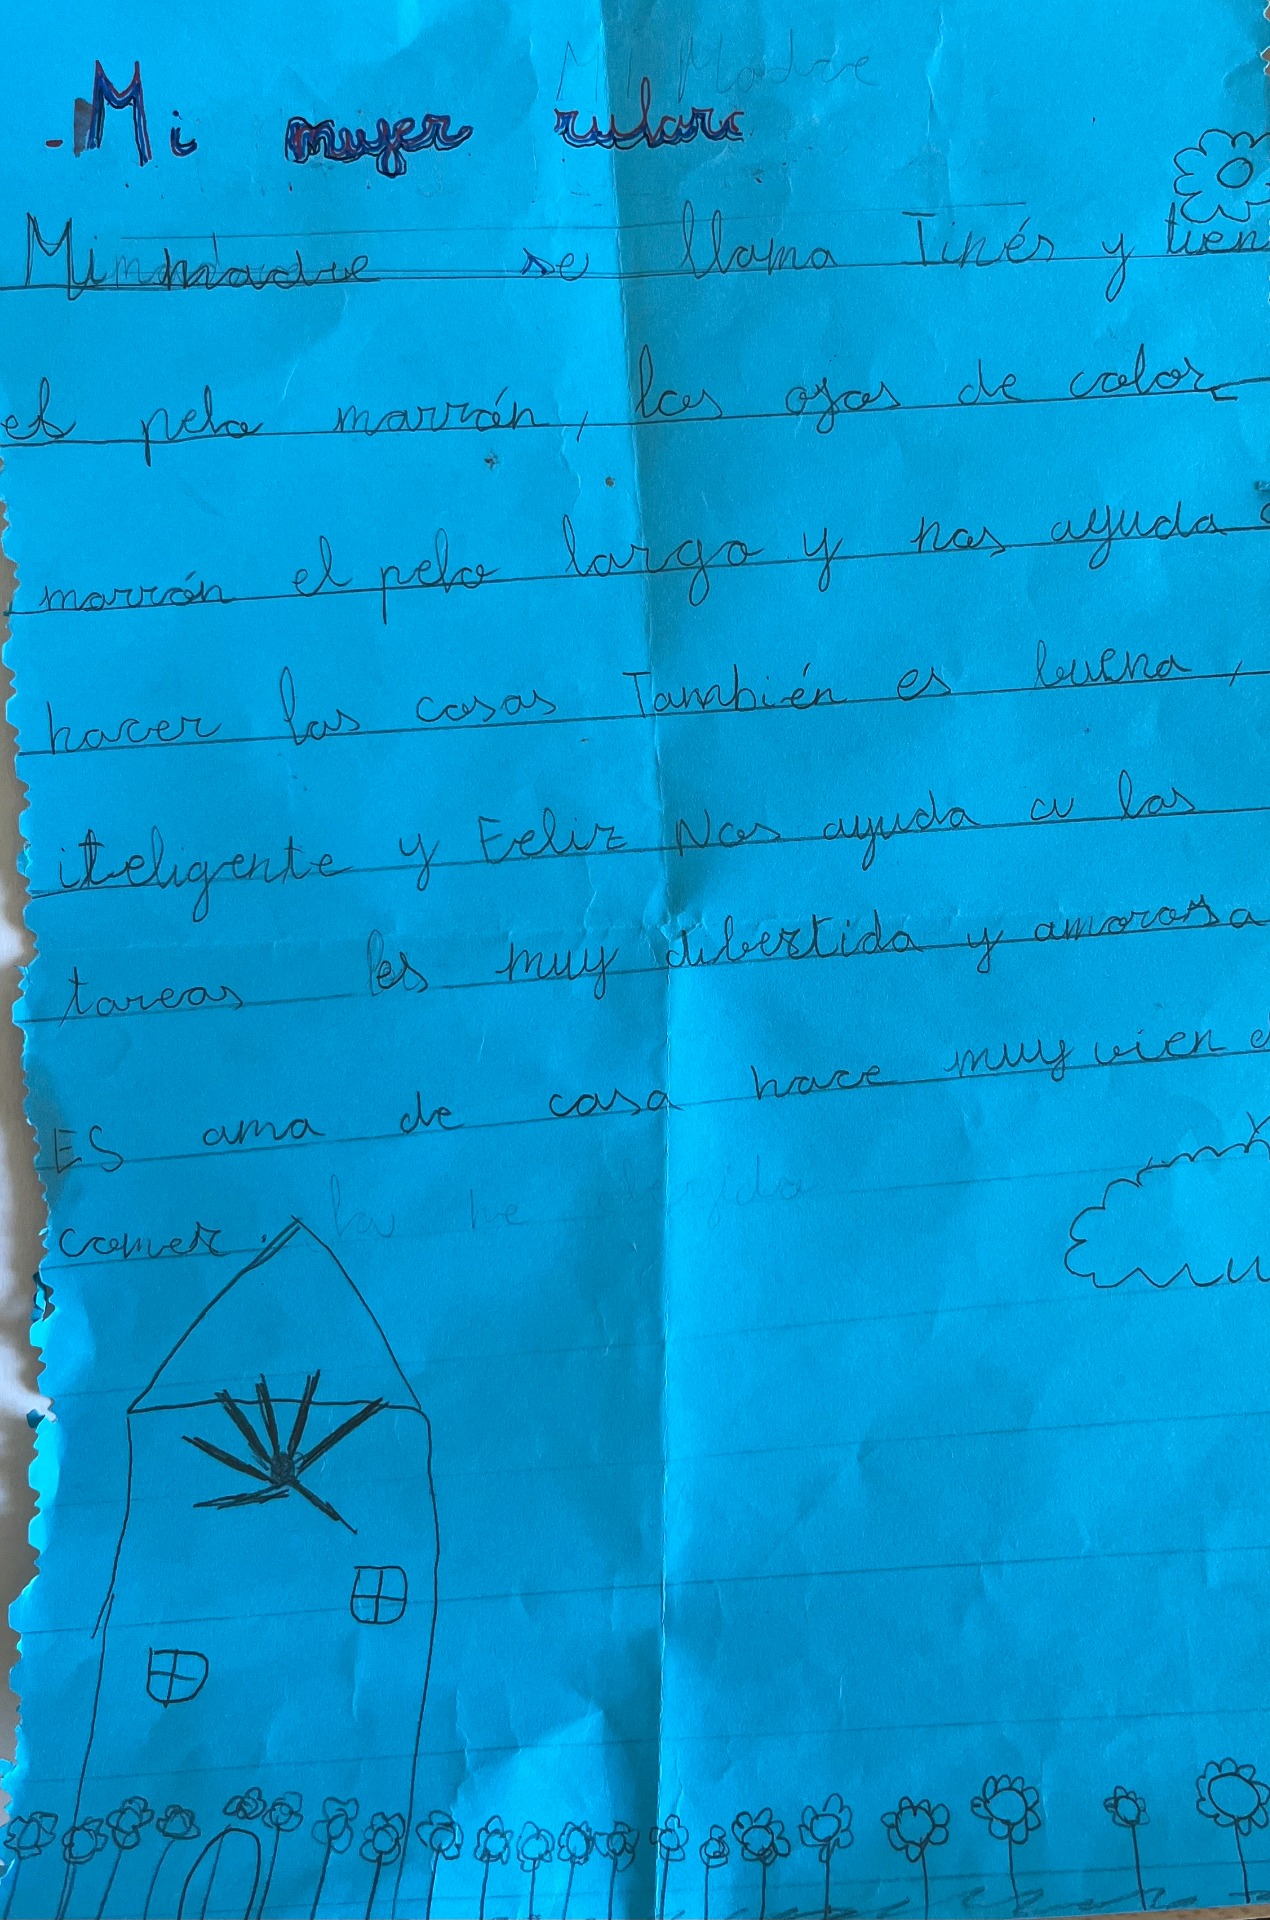 Mi Madre
- Mi mujer rulara
Mi madre se llama Tinés y tien
el pelo marrón, los ojos de color
marrón el pelo largo y nos ayuda a
hacer las cosas También es buena,
iteligente y Feliz Nos ayuda a las
tareas es muy dibertida y amorosa
ES ama de casa hace muy vien e
comer. la he elegido